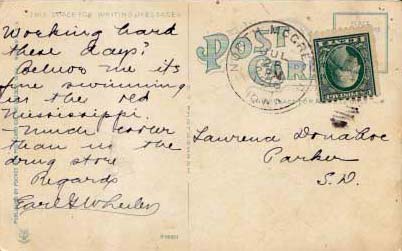 THIS SPACE FOR WRITING MESSAGES
Working hard
these days?
Believe me its
fine swimming
in the old
Mississippi.
- Much cooler
than in the
drug store
Regards
Earl G Wheeler
POST
CARD
NORTH MCGREGOR
JUL
IOWA
SPACE FOR
Laurena Donahoe
Parker
S.D.